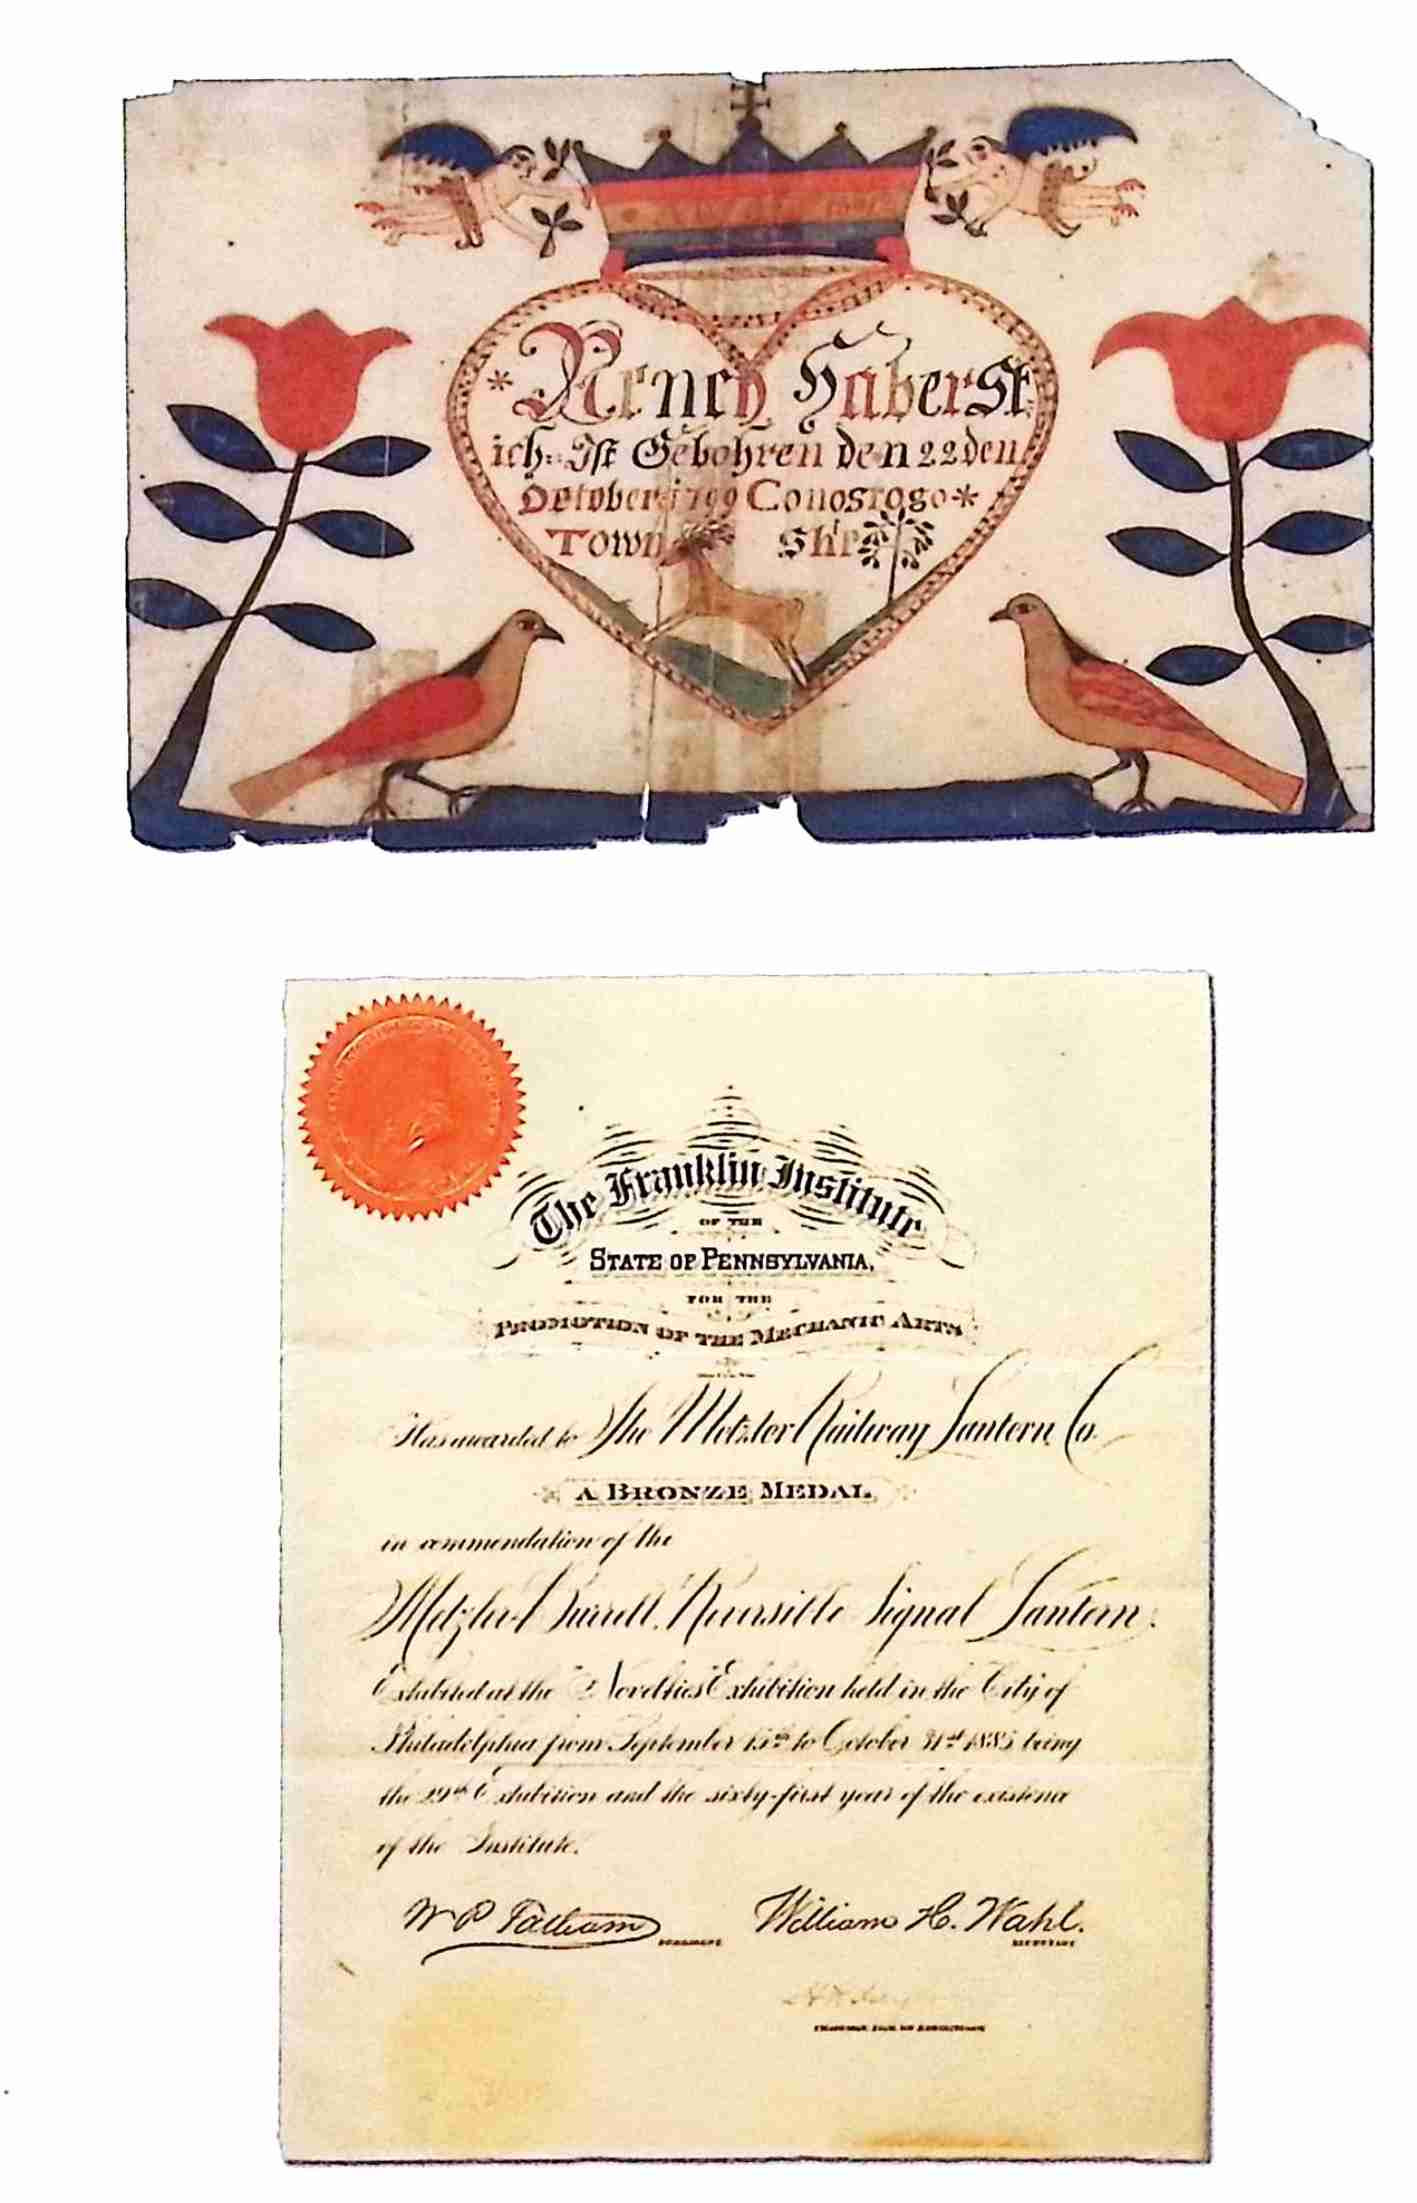 * Nency Haberst
ich: Ist Gebohren den 22 den
October 1799 Conostogo *
Town Ship
The Franklin Institute
OF THE
STATE OF PENNSYLVANIA,
FOR THE
PROMOTION OF THE MECHANIC ARTS
Has awarded to The Metzler Railway Lantern Co.
A BRONZE MEDAL
in commendation of the
Metzler-Burrell Reversible Signal Lantern.
Exhibited at the "Novelties" Exhibition held in the City of
Philadelphia from September 15th to October 31st 1885 being
the 29th Exhibition and the sixty-first year of the existence
of the Institute.
W P Tatham
PRESIDENT
William H. Wahl.
SECRETARY